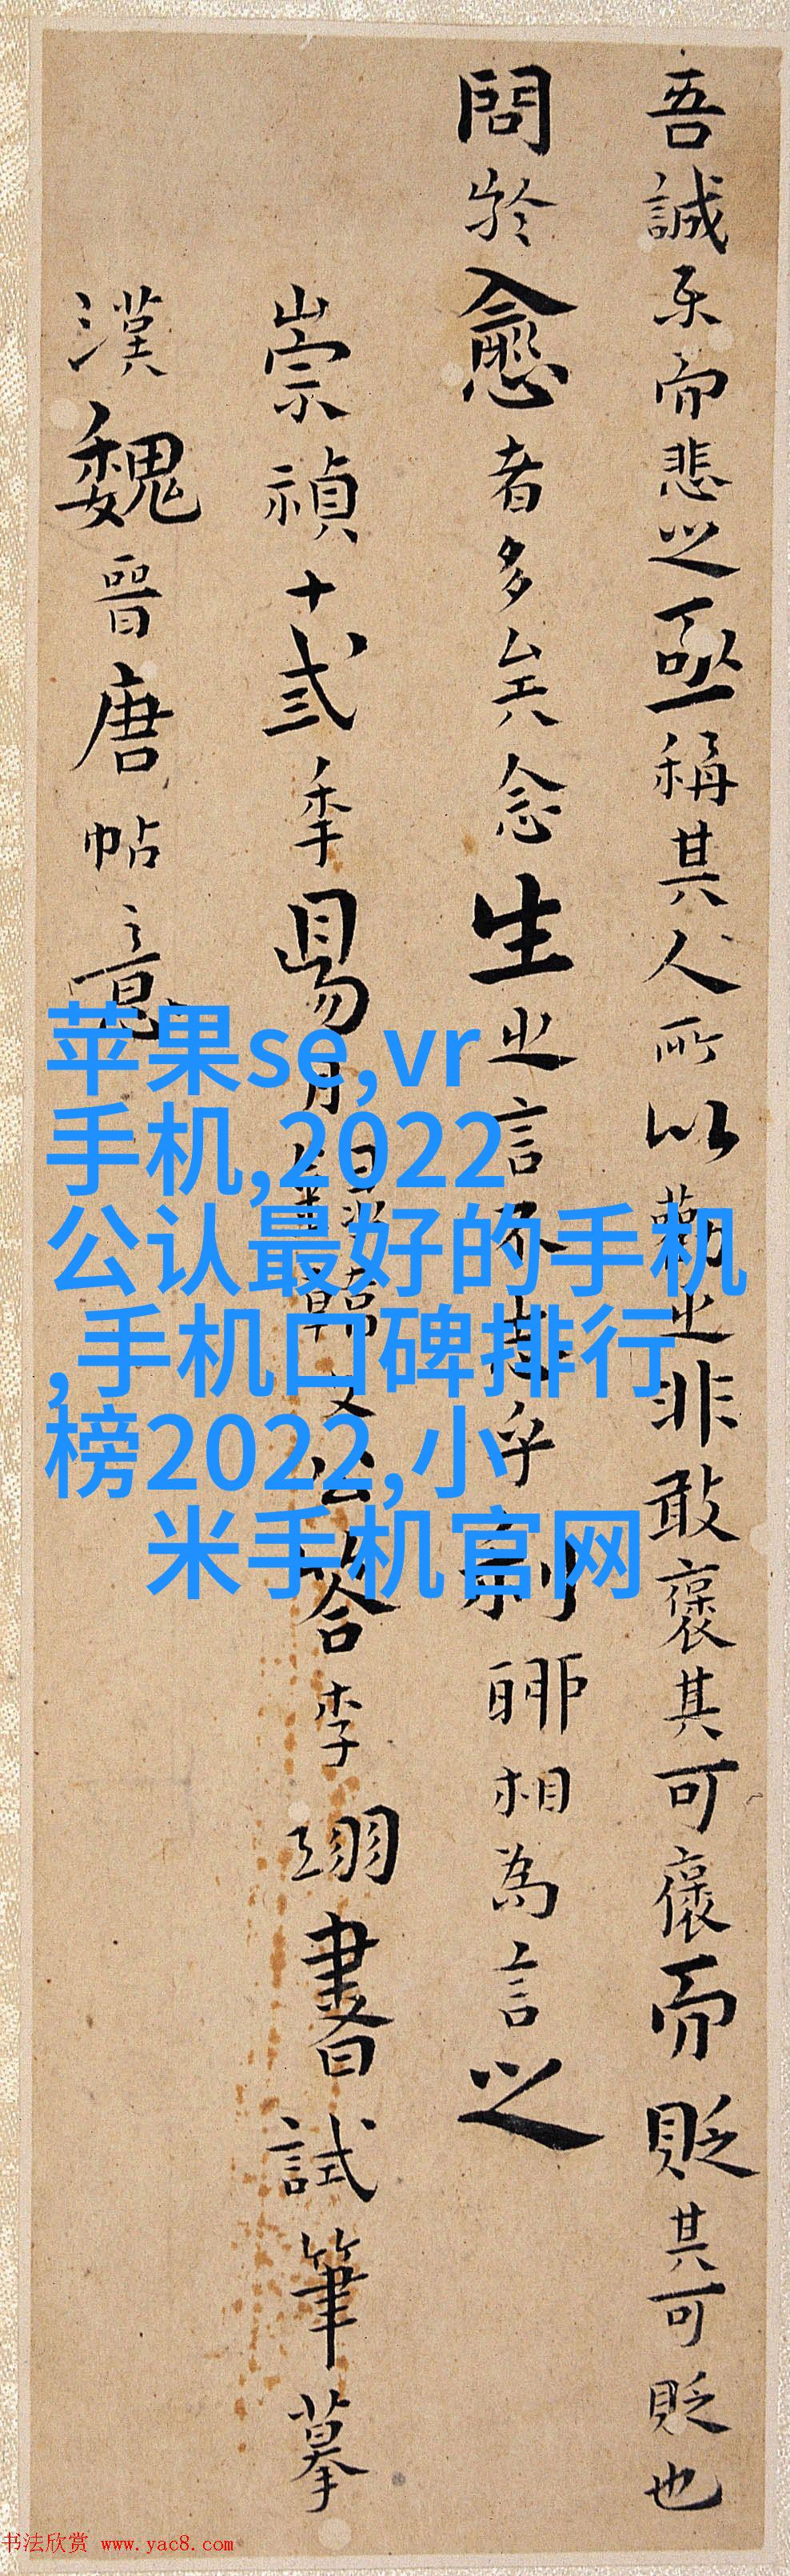 吾誠樂而悲之亟稱其人所以勸之非敢褒其可褒而貶其可貶也
問於愈者多矣念生之言不志乎利聊相為言之
崇禎十弍季昜月韓文公答李翊書試筆摹
漢魏晉唐帖意
苹果se,vr
手机,2022
公认最好的手机
,手机口碑排行
榜2022,小
米手机官网
书法欣赏 www.yac8.com